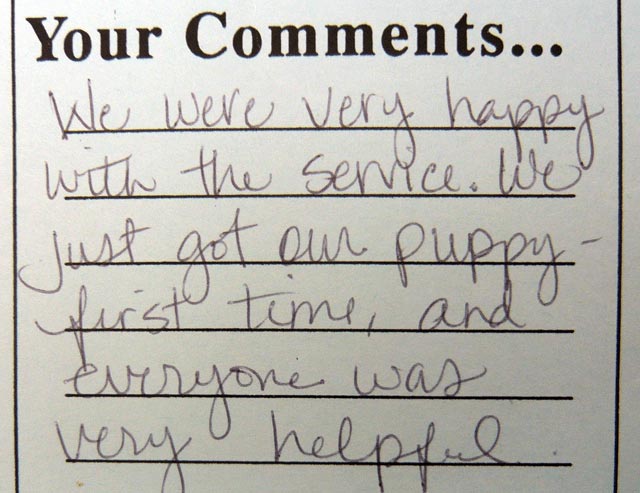 Your Comments...
We were very happy
with the service. We
just got our puppy -
first time, and
everyone was
very helpful.